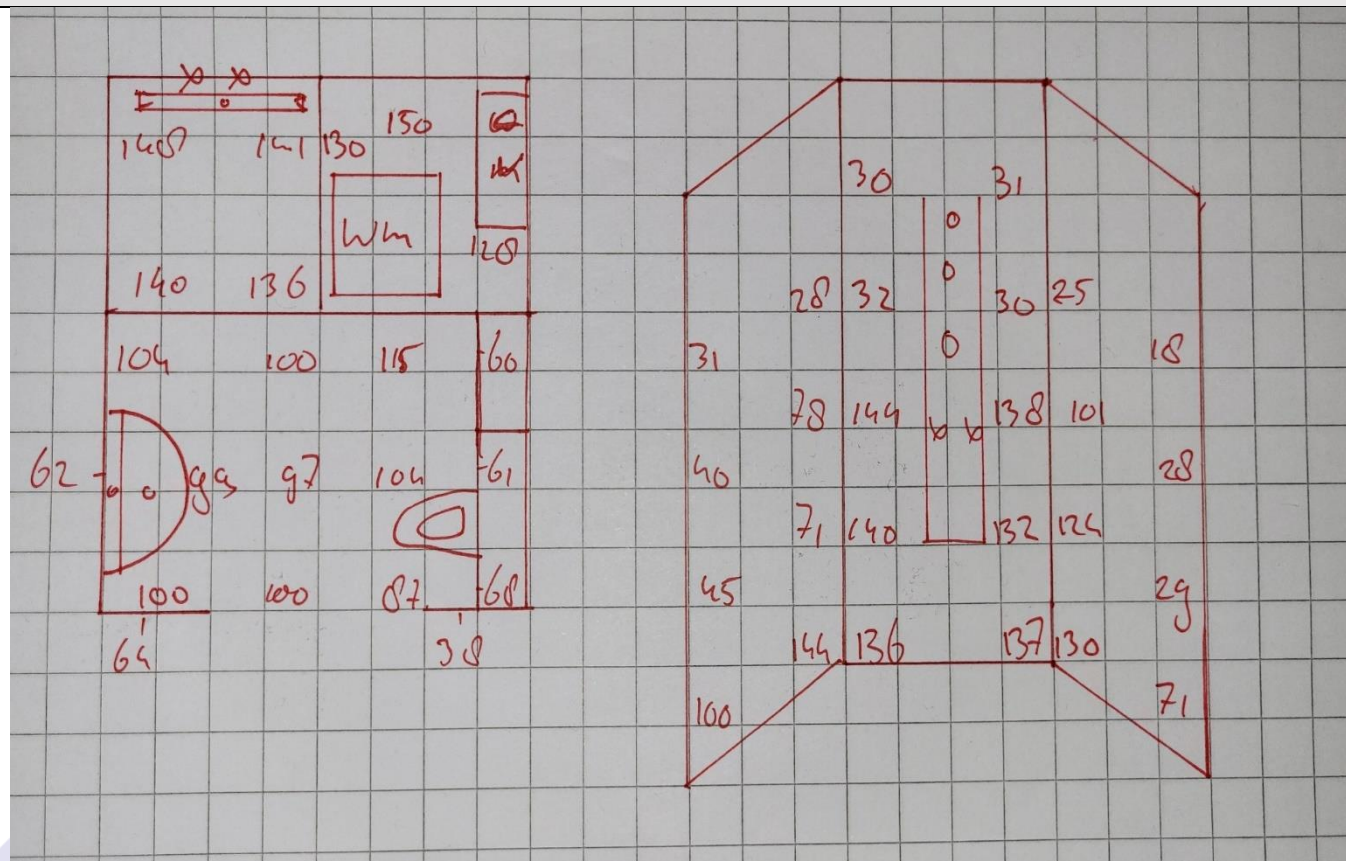 150
148 141 130
Wm
128
140 136
104 100 115 60
62 99 97 104 61
100 100 87 68
64 38
30 31
28 32 30 25
31 18
78 144 138 101
40 28
71 140 132 124
45 29
144 136 137 130
100 71